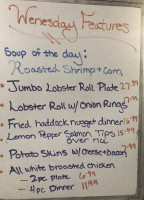 Wenesday Features
Soup of the day:
Roasted Shrimp & corn
• Jumbo Lobster Roll Plate 27.99
• Lobster Roll w/ Onion Rings
• Fried haddock nugget dinner 16.99
• Lemon Pepper Salmon Tips 15.99
over rice
• Potato Skins w/ Cheese + bacon 7.99
• All white broasted chicken
- 2pc plate 6.99
- 4pc Dinner 11.99